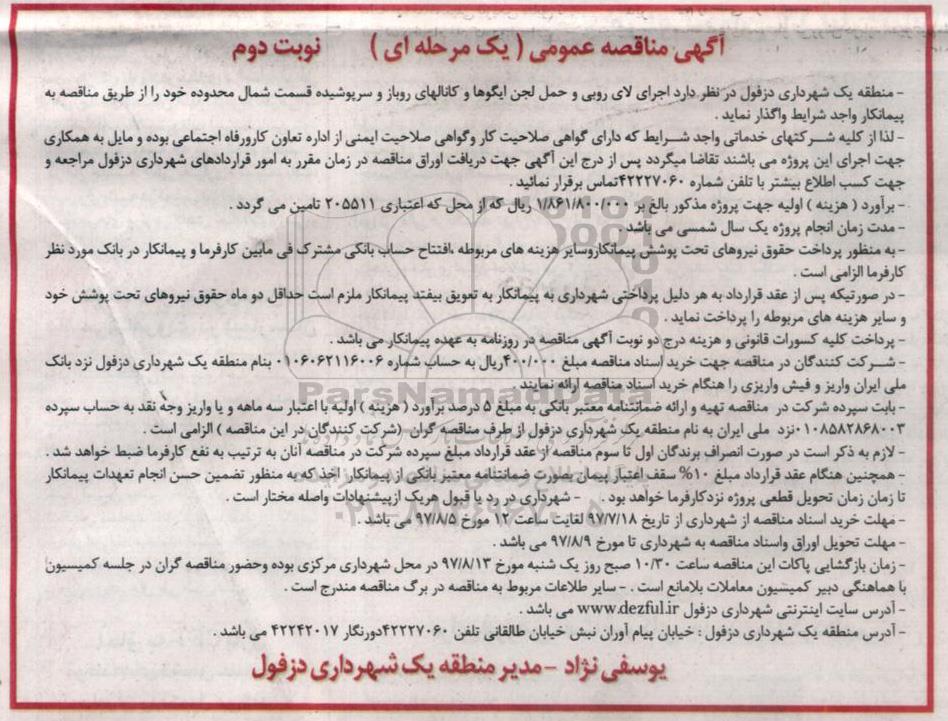 آگهی مناقصه عمومی ( یک مرحله ای ) نوبت دوم
- منطقه یک شهرداری دزفول در نظر دارد اجرای لای روبی و حمل لجن ایگوها و کانالهای روباز و سرپوشیده قسمت شمال محدوده خود را از طریق مناقصه به
پیمانکار واجد شرایط واگذار نماید .
- لذا از کلیه شرکتهای خدماتی واجد شرایط که دارای گواهی صلاحیت کار وگواهی صلاحیت ایمنی از اداره تعاون کارورفاه اجتماعی بوده و مایل به همکاری
جهت اجرای این پروژه می باشند تقاضا میگردد پس از درج این آگهی جهت دریافت اوراق مناقصه در زمان مقرر به امور قراردادهای شهرداری دزفول مراجعه و
جهت کسب اطلاع بیشتر با تلفن شماره ۴۲۲۲۷۰۶۰تماس برقرار نمائید .
- برآورد ( هزینه ) اولیه جهت پروژه مذکور بالغ بر ۱/۸۶۱/۸۰۰/۰۰۰ ریال که از محل که اعتباری ۲۰۵۵۱۱ تامین می گردد .
- مدت زمان انجام پروژه یک سال شمسی می باشد
- به منظور پرداخت حقوق نیروهای تحت پوشش پیمانکاروسایر هزینه های مربوطه ،افتتاح حساب بانکی مشترک فی مابین کارفرما و پیمانکار در بانک مورد نظر
کارفرما الزامی است .
- در صورتیکه پس از عقد قرارداد به هر دلیل پرداختی شهرداری به پیمانکار به تعویق بیفتد پیمانکار ملزم است حداقل دو ماه حقوق نیروهای تحت پوشش خود
و سایر هزینه های مربوطه را پرداخت نماید .
- پرداخت کلیه کسورات قانونی و هزینه درج دو نوبت آگهی مناقصه در روزنامه به عهده پیمانکار می باشد .
- شرکت کنندگان در مناقصه جهت خرید اسناد مناقصه مبلغ ۴۰۰/۰۰۰ریال به حساب شماره ۰۱۰۶۰۶۲۱۱۶۰۰۶ بنام منطقه یک شهرداری دزفول نزد بانک
ملی ایران واریز و فیش واریزی را هنگام خرید اسناد مناقصه ارائه نمایند .
ParsNamadData
- بابت سپرده شرکت در مناقصه تهیه و ارائه ضمانتنامه معتبر بانکی به مبلغ ۵ درصد برآورد ( هزینه ) اولیه با اعتبار سه ماهه و یا واریز وجه نقد به حساب سپرده
۰۱۰۸۵۸۲۸۶۸۰۰۳نزد ملی ایران به نام منطقه یک شهرداری دزفول از طرف مناقصه گران (شرکت کنندگان در این مناقصه ) الزامی است .
- لازم به ذکر است در صورت انصراف برندگان اول تا سوم مناقصه از عقد قرارداد مبلغ سپرده شرکت در مناقصه آنان به ترتیب به نفع کارفرما ضبط خواهد شد .
- همچنین هنگام عقد قرارداد مبلغ ۱۰% سقف اعتبار پیمان بصورت ضمانتنامه معتبر بانکی از پیمانکار اخذ که به منظور تضمین حسن انجام تعهدات پیمانکار
تا زمان زمان تحویل قطعی پروژه نزدکارفرما خواهد بود . - شهرداری در رد یا قبول هریک ازپیشنهادات واصله مختار است .
- مهلت خرید اسناد مناقصه از شهرداری از تاریخ ۹۷/۷/۱۸ لغایت ساعت ۱۲ مورخ ۹۷/۸/۵ می باشد .
- مهلت تحویل اوراق واسناد مناقصه به شهرداری تا مورخ ۹۷/۸/۹ می باشد .
- زمان بازگشایی پاکات این مناقصه ساعت ۱۰/۳۰ صبح روز یک شنبه مورخ ۹۷/۸/۱۳ در محل شهرداری مرکزی بوده وحضور مناقصه گران در جلسه کمیسیون
با هماهنگی دبیر کمیسیون معاملات بلامانع است . - سایر طلاعات مربوط به مناقصه در برگ مناقصه مندرج است .
- آدرس سایت اینترنتی شهرداری دزفول www.dezful.ir می باشد .
- آدرس منطقه یک شهرداری دزفول : خیابان پیام آوران نبش خیابان طالقانی تلفن ۴۲۲۲۷۰۶۰دورنگار ۴۲۲۴۲۰۱۷ می باشد .
یوسفی نژاد - مدیر منطقه یک شهرداری دزفول